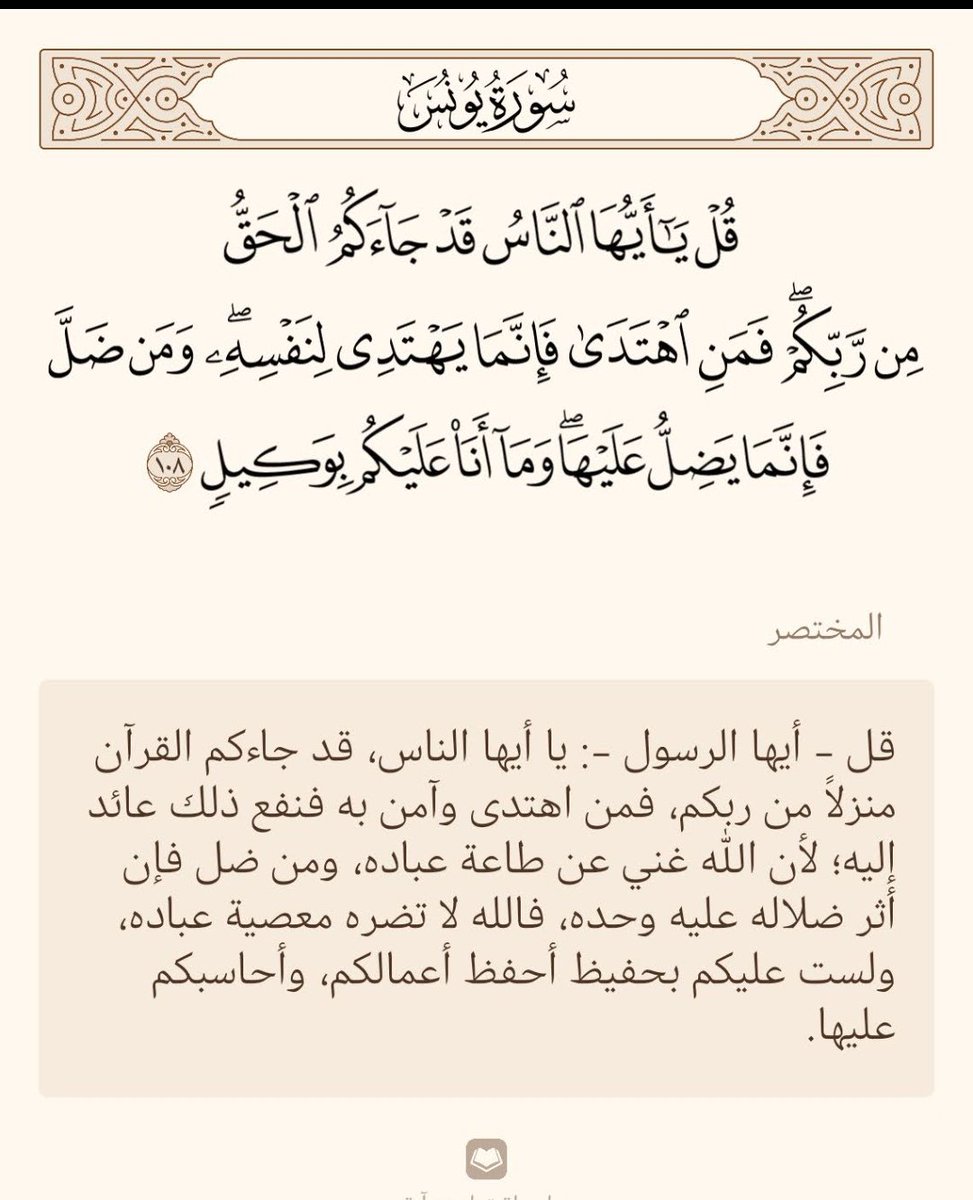 سُورَةُ يُونُسَ
قُلْ يَـٰٓأَيُّهَا ٱلنَّاسُ قَدْ جَآءَكُمُ ٱلْحَقُّ
مِن رَّبِّكُمْ ۖ فَمَنِ ٱهْتَدَىٰ فَإِنَّمَا يَهْتَدِى لِنَفْسِهِۦ ۖ وَمَن ضَلَّ
فَإِنَّمَا يَضِلُّ عَلَيْهَا ۖ وَمَآ أَنَا۠ عَلَيْكُم بِوَكِيلٍ ١٠٨
المختصر
قل – أيها الرسول –: يا أيها الناس، قد جاءكم القرآن
منزلاً من ربكم، فمن اهتدى وآمن به فنفع ذلك عائد
إليه؛ لأن الله غني عن طاعة عباده، ومن ضل فإن
أثر ضلاله عليه وحده، فالله لا تضره معصية عباده،
ولست عليكم بحفيظ أحفظ أعمالكم، وأحاسبكم
عليها.